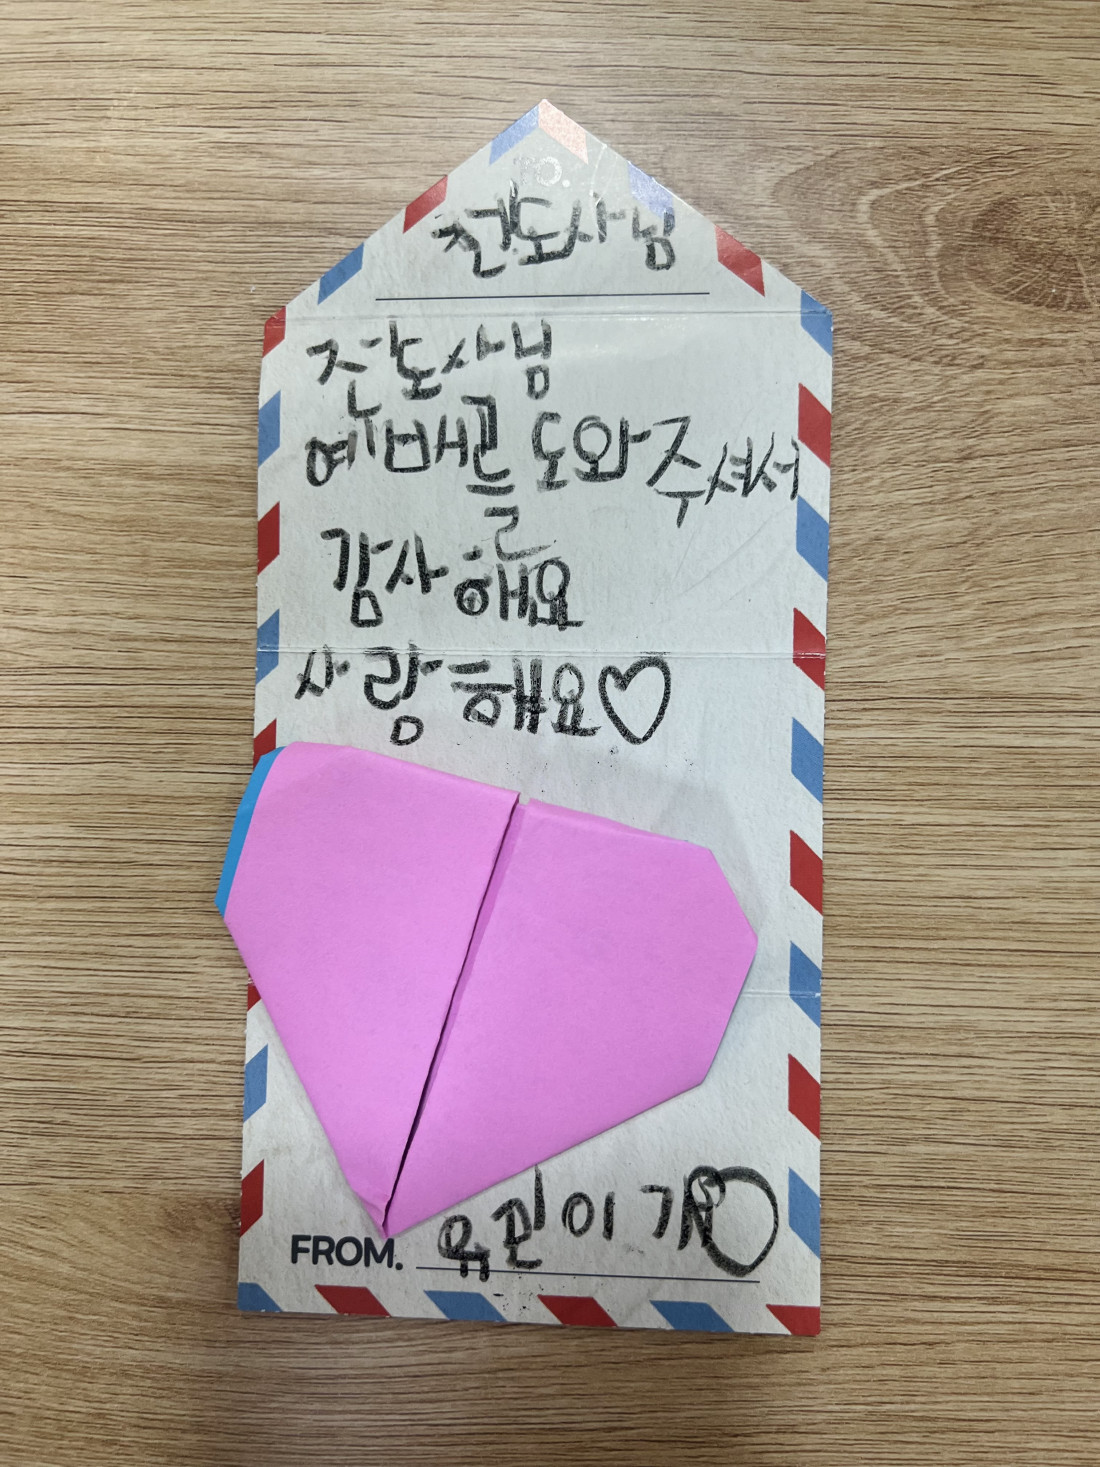 TO.
전도사님
전도사님
예배를 도와주셔서
감사해요
사랑해요♡
FROM. 유민이가♡